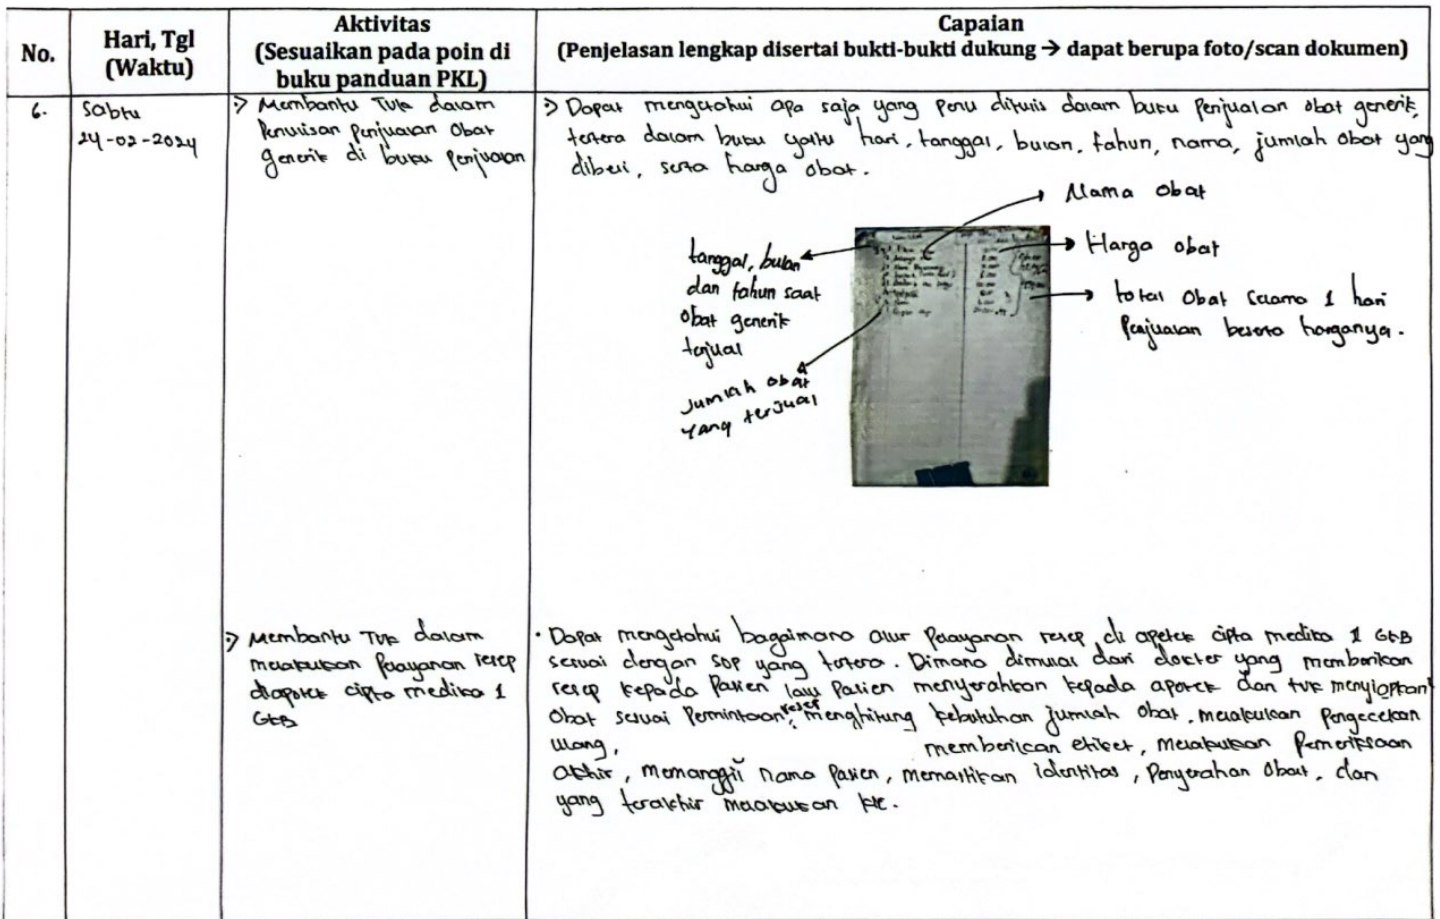 No.
Hari, Tgl
(Waktu)
Aktivitas
(Sesuaikan pada poin di
buku panduan PKL)
Capaian
(Penjelasan lengkap disertai bukti-bukti dukung → dapat berupa foto/scan dokumen)
6.
Sabtu
24-02-2024
Membantu TVK dalam
Penulisan Penjualan Obat
generik di buku Penjualan
Dapat mengetahui apa saja yang perlu ditulis dalam buku Penjualan obat generik,
tertera dalam buku yaitu hari, tanggal, bulan, tahun, nama, jumlah obat yang
diberi, serta harga obat.
Nama obat
Harga obat
total Obat selama 1 hari
Penjualan beserta harganya.
tanggal, bulan
dan tahun saat
obat generik
terjual
Jumlah obat
yang terjual
Membantu TVK dalam
melakukan Pelayanan resep
diapotek cipta medika 1
GKB
· Dapat mengetahui bagaimana alur Pelayanan resep di apetek cipta medika 1 GKB
sesuai dengan SOP yang tertera. Dimana dimulai dari dokter yang memberikan
resep kepada Pasien lalu Pasien menyerahkan kepada apotek dan tvk menyiapkan
Obat sesuai Permintaan resep, menghitung kebutuhan jumlah obat, melakukan Pengecekan
Ulang, memberikan etiket, melakukan Pemeriksaan
akhir, memanggil nama Pasien, memastikan identitas, Penyerahan Obat, dan
yang terakhir melakukan KIE.